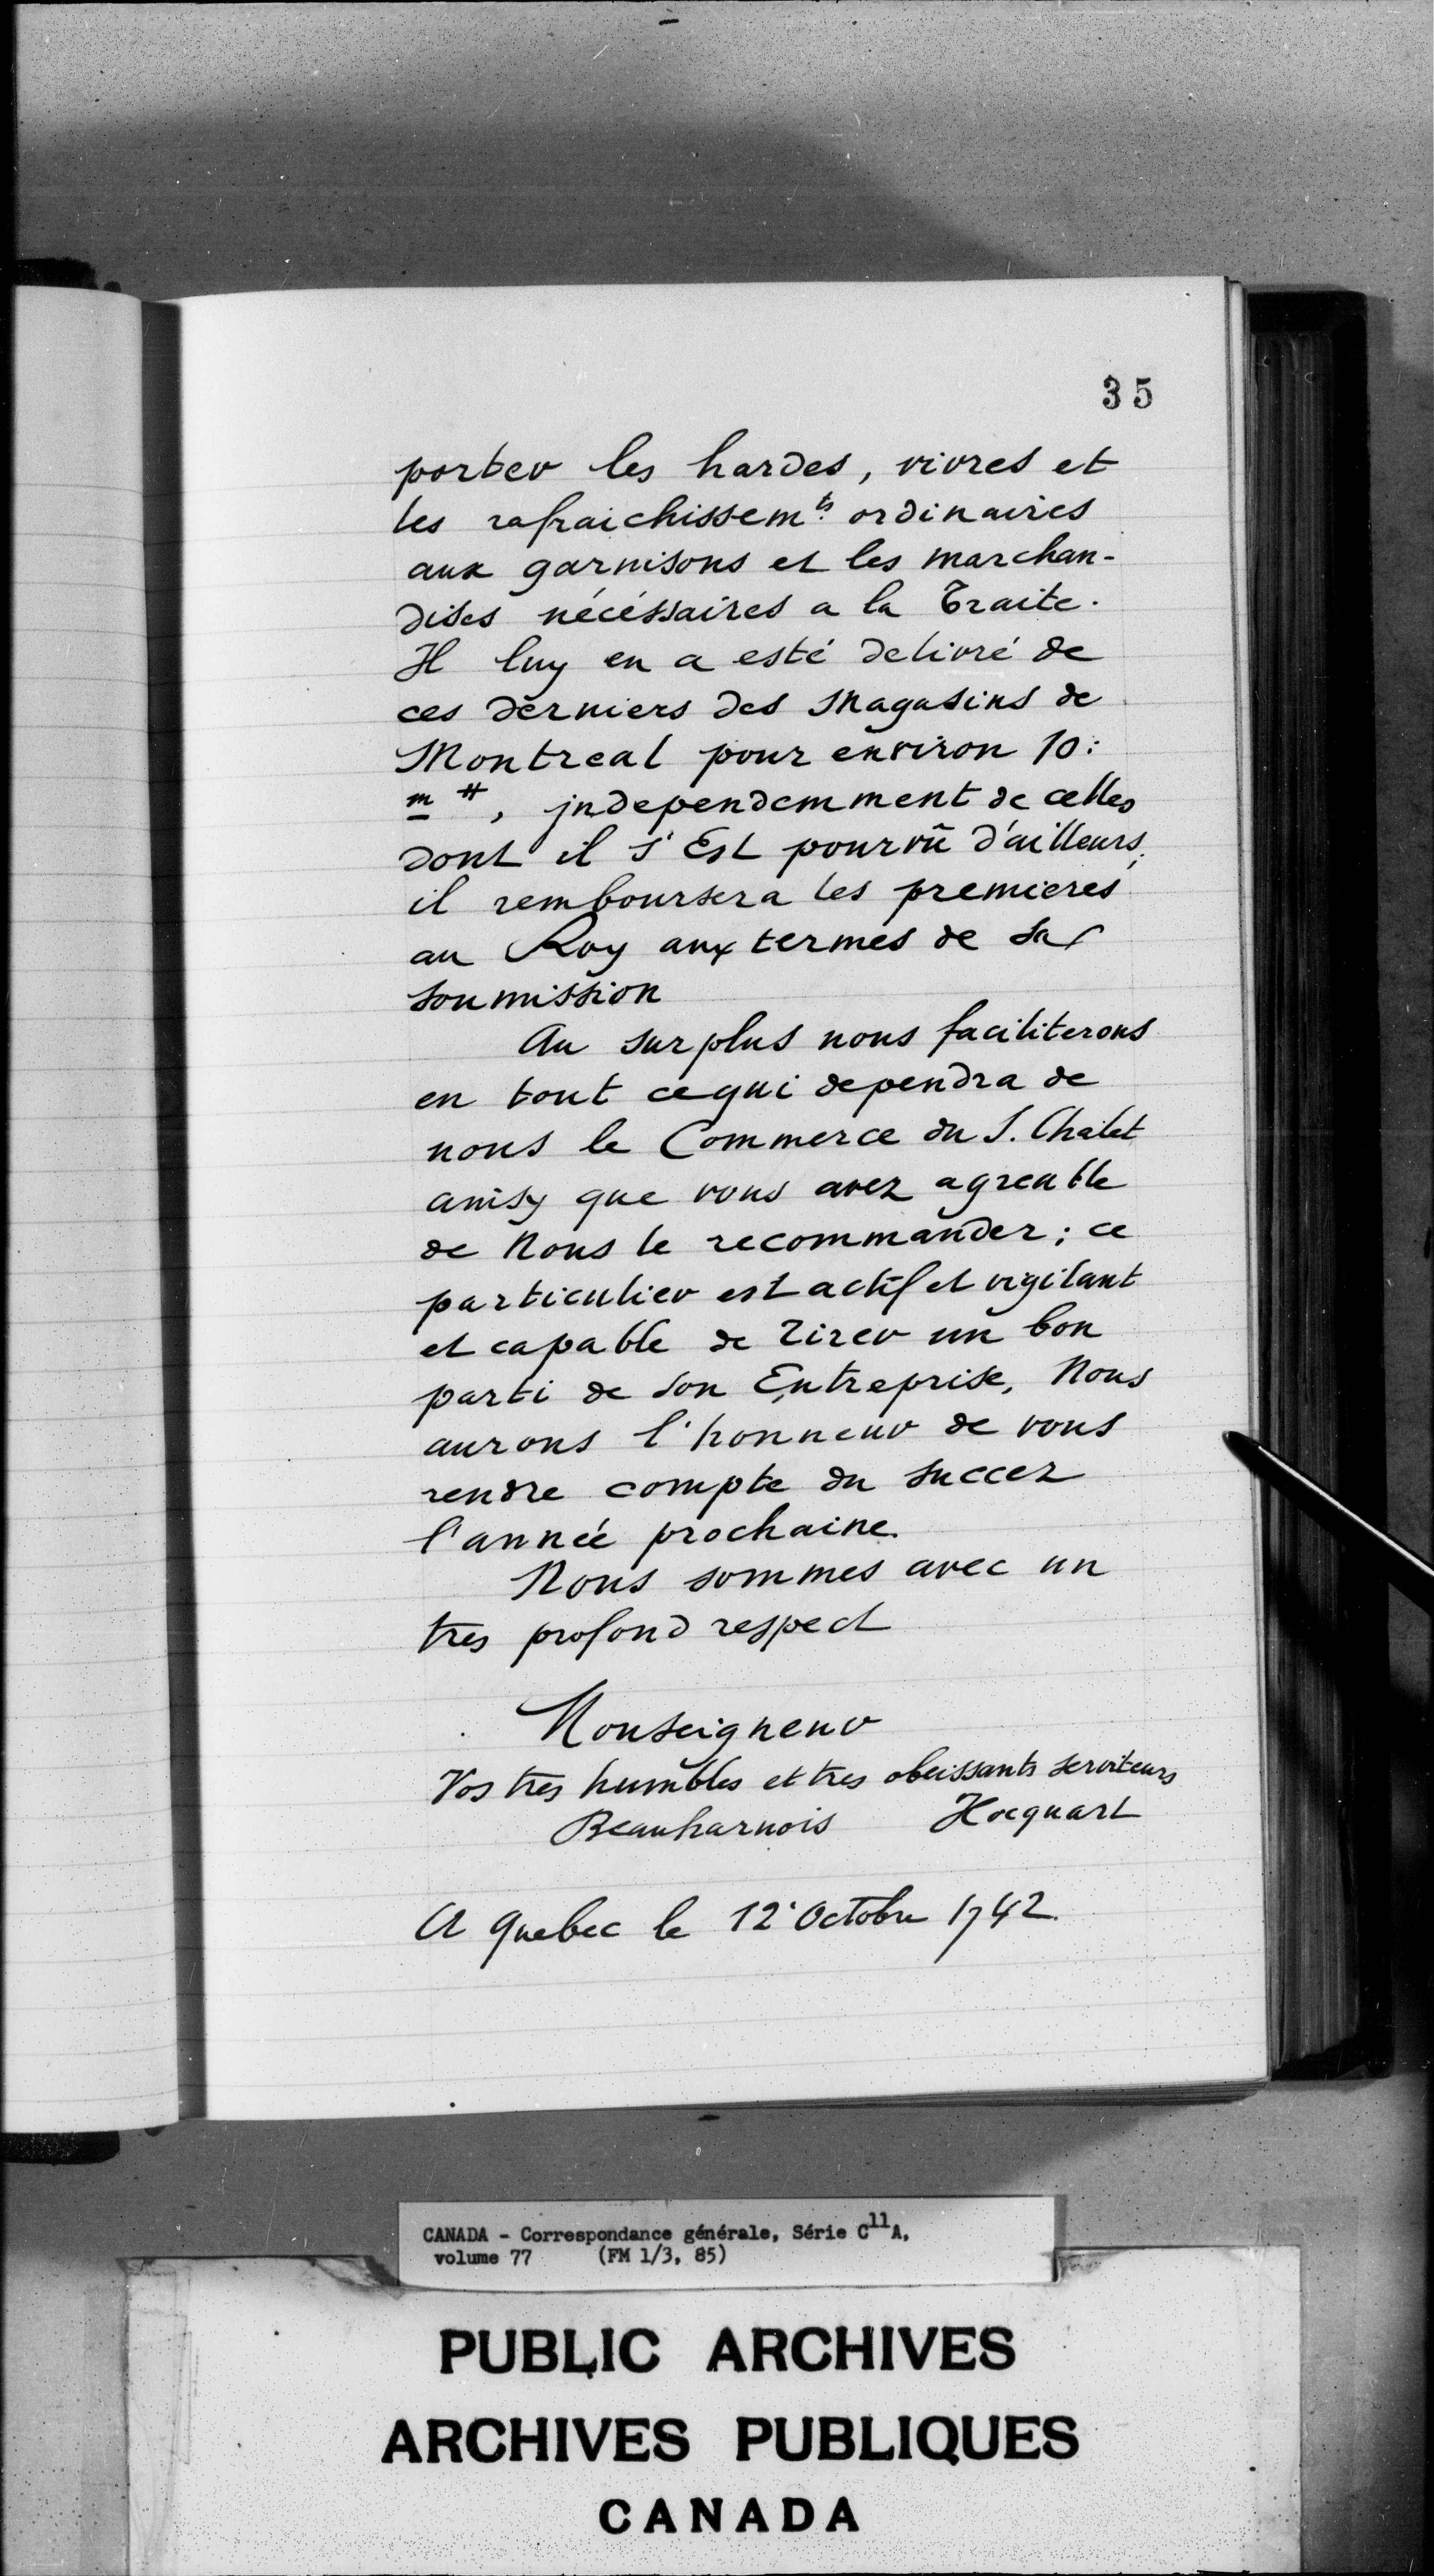 35
porter les hardes, vivres et
les rafraichissem.ts ordinaires
aux garnisons et les marchan-
dises nécéssaires a la Traite.
Il luy en a esté delivré de
ces derniers des Magasins de
Montreal pour environ 10:
m #, jndependemment de celles
dont il s'Est pourvû d'ailleurs,
il remboursera les premieres
au Roy aux termes de sa
soumission
Au surplus nous faciliterons
en tout cequi dependra de
nous le Commerce du S. Chalet
ainsy que vous avez agreable
de Nous le recommander; ce
particulier est actif et vigilant
et capable de tirer un bon
parti de son Entreprise, Nous
aurons l'honneur de vous
rendre compte du succez
l'année prochaine.
Nous sommes avec un
tres profond respect
Monseigneur
Vos tres humbles et tres obeissants serviteurs
Beauharnois Hocquart
A Quebec le 12 Octobre 1742.
CANADA - Correspondance générale, Série C11A,
volume 77 (FM 1/3, 85)
PUBLIC ARCHIVES
ARCHIVES PUBLIQUES
CANADA